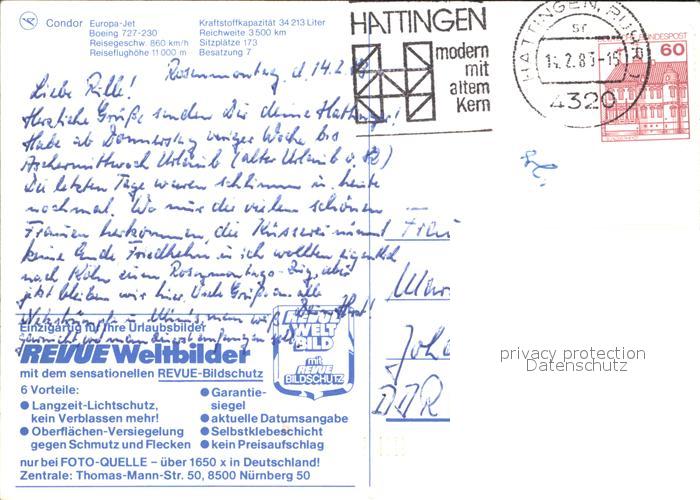 Condor Europa-Jet
Boeing 727-230
Reisegeschw. 860 km/h
Reiseflughöhe 11 000 m
Kraftstoffkapazität 34 213 Liter
Reichweite 3 500 km
Sitzplätze 173
Besatzung 7
HATTINGEN
modern
mit
altem
Kern
HATTINGEN, RUHR
14.2.83-15
4320
DEUTSCHE BUNDESPOST
60
Rosenmontag, d. 14.2.83
Liebe
Herzliche Grüße senden Dir deine Hattinger!
Habe ab Donnerstag voriger Woche bis
Aschermittwoch Urlaub (alter Urlaub v. 82)
Die letzten Tage waren schlimm u. heute
nochmal. Wo nur die vielen schönen
Frauen herkommen, die Küsserei nimmt
keine Ende Friedhelm u. ich wollten eigentlich
nach Köln zum Rosenmontags-Zug, aber
jetzt bleiben wir hier. Viele Grüße an alle
Frau
Joh
DDR
Einzigartig für Ihre Urlaubsbilder
REVUE Weltbilder
mit dem sensationellen REVUE-Bildschutz
REVUE
WELT
BILD
mit
REVUE
BILDSCHUTZ
6 Vorteile:
● Langzeit-Lichtschutz,
kein Verblassen mehr!
● Oberflächen-Versiegelung
gegen Schmutz und Flecken
● Garantie-
siegel
● aktuelle Datumsangabe
● Selbstklebeschicht
● kein Preisaufschlag
nur bei FOTO-QUELLE – über 1650 x in Deutschland!
Zentrale: Thomas-Mann-Str. 50, 8500 Nürnberg 50
privacy protection
Datenschutz